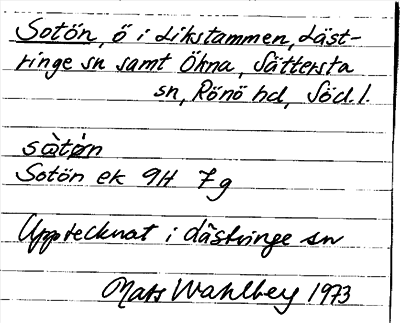 Sotön, ö i Likstammen, Läst-
ringe sn samt Ökna, Sättersta
sn, Rönö hd, Södl.
sὰtø̀n
Sotön ek 9H 7g
Upptecknat i Lästringe sn
Mats Wahlberg 1973